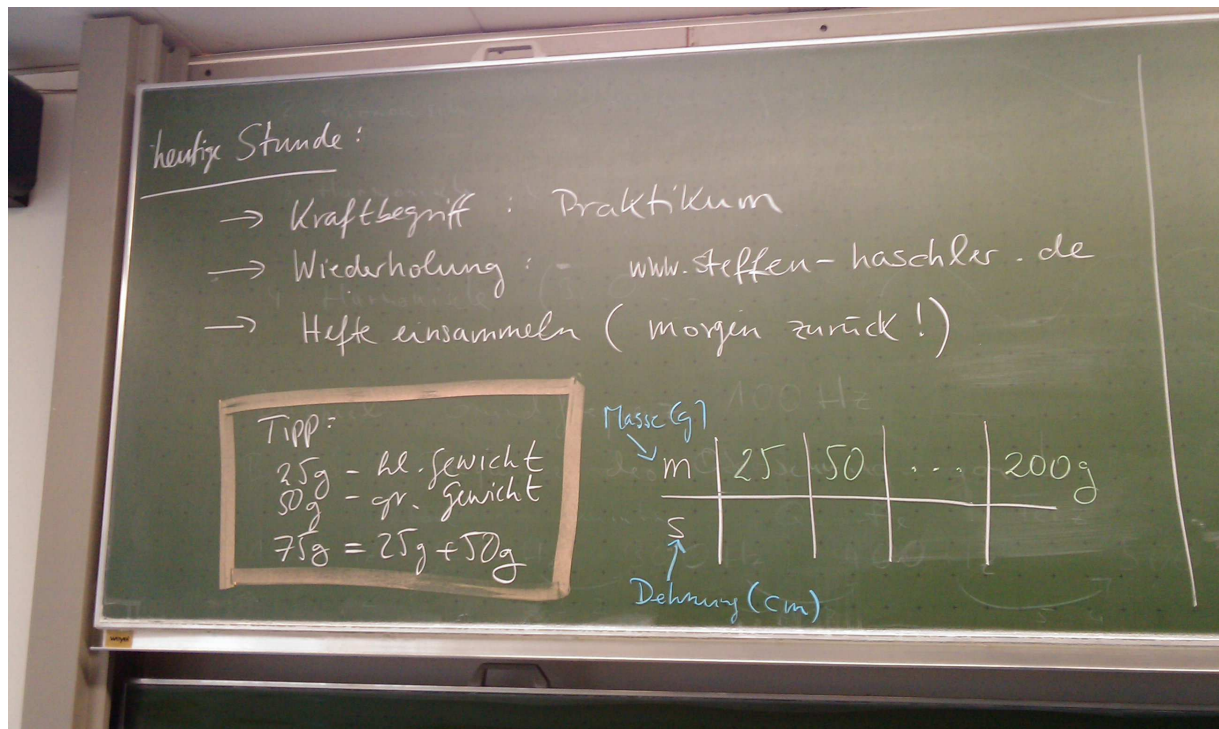 heutige Stunde:
→ Kraftbegriff : Praktikum
→ Wiederholung : - www.steffen-haschler.de
→ Hefte einsammeln (morgen zurück!)
Tipp:
25g - kl. Gewicht
50g - gr. Gewicht
75g = 25g + 50g
Masse (g)
m 25 50 ... 200g
s
Dehnung (cm)
100 Hz